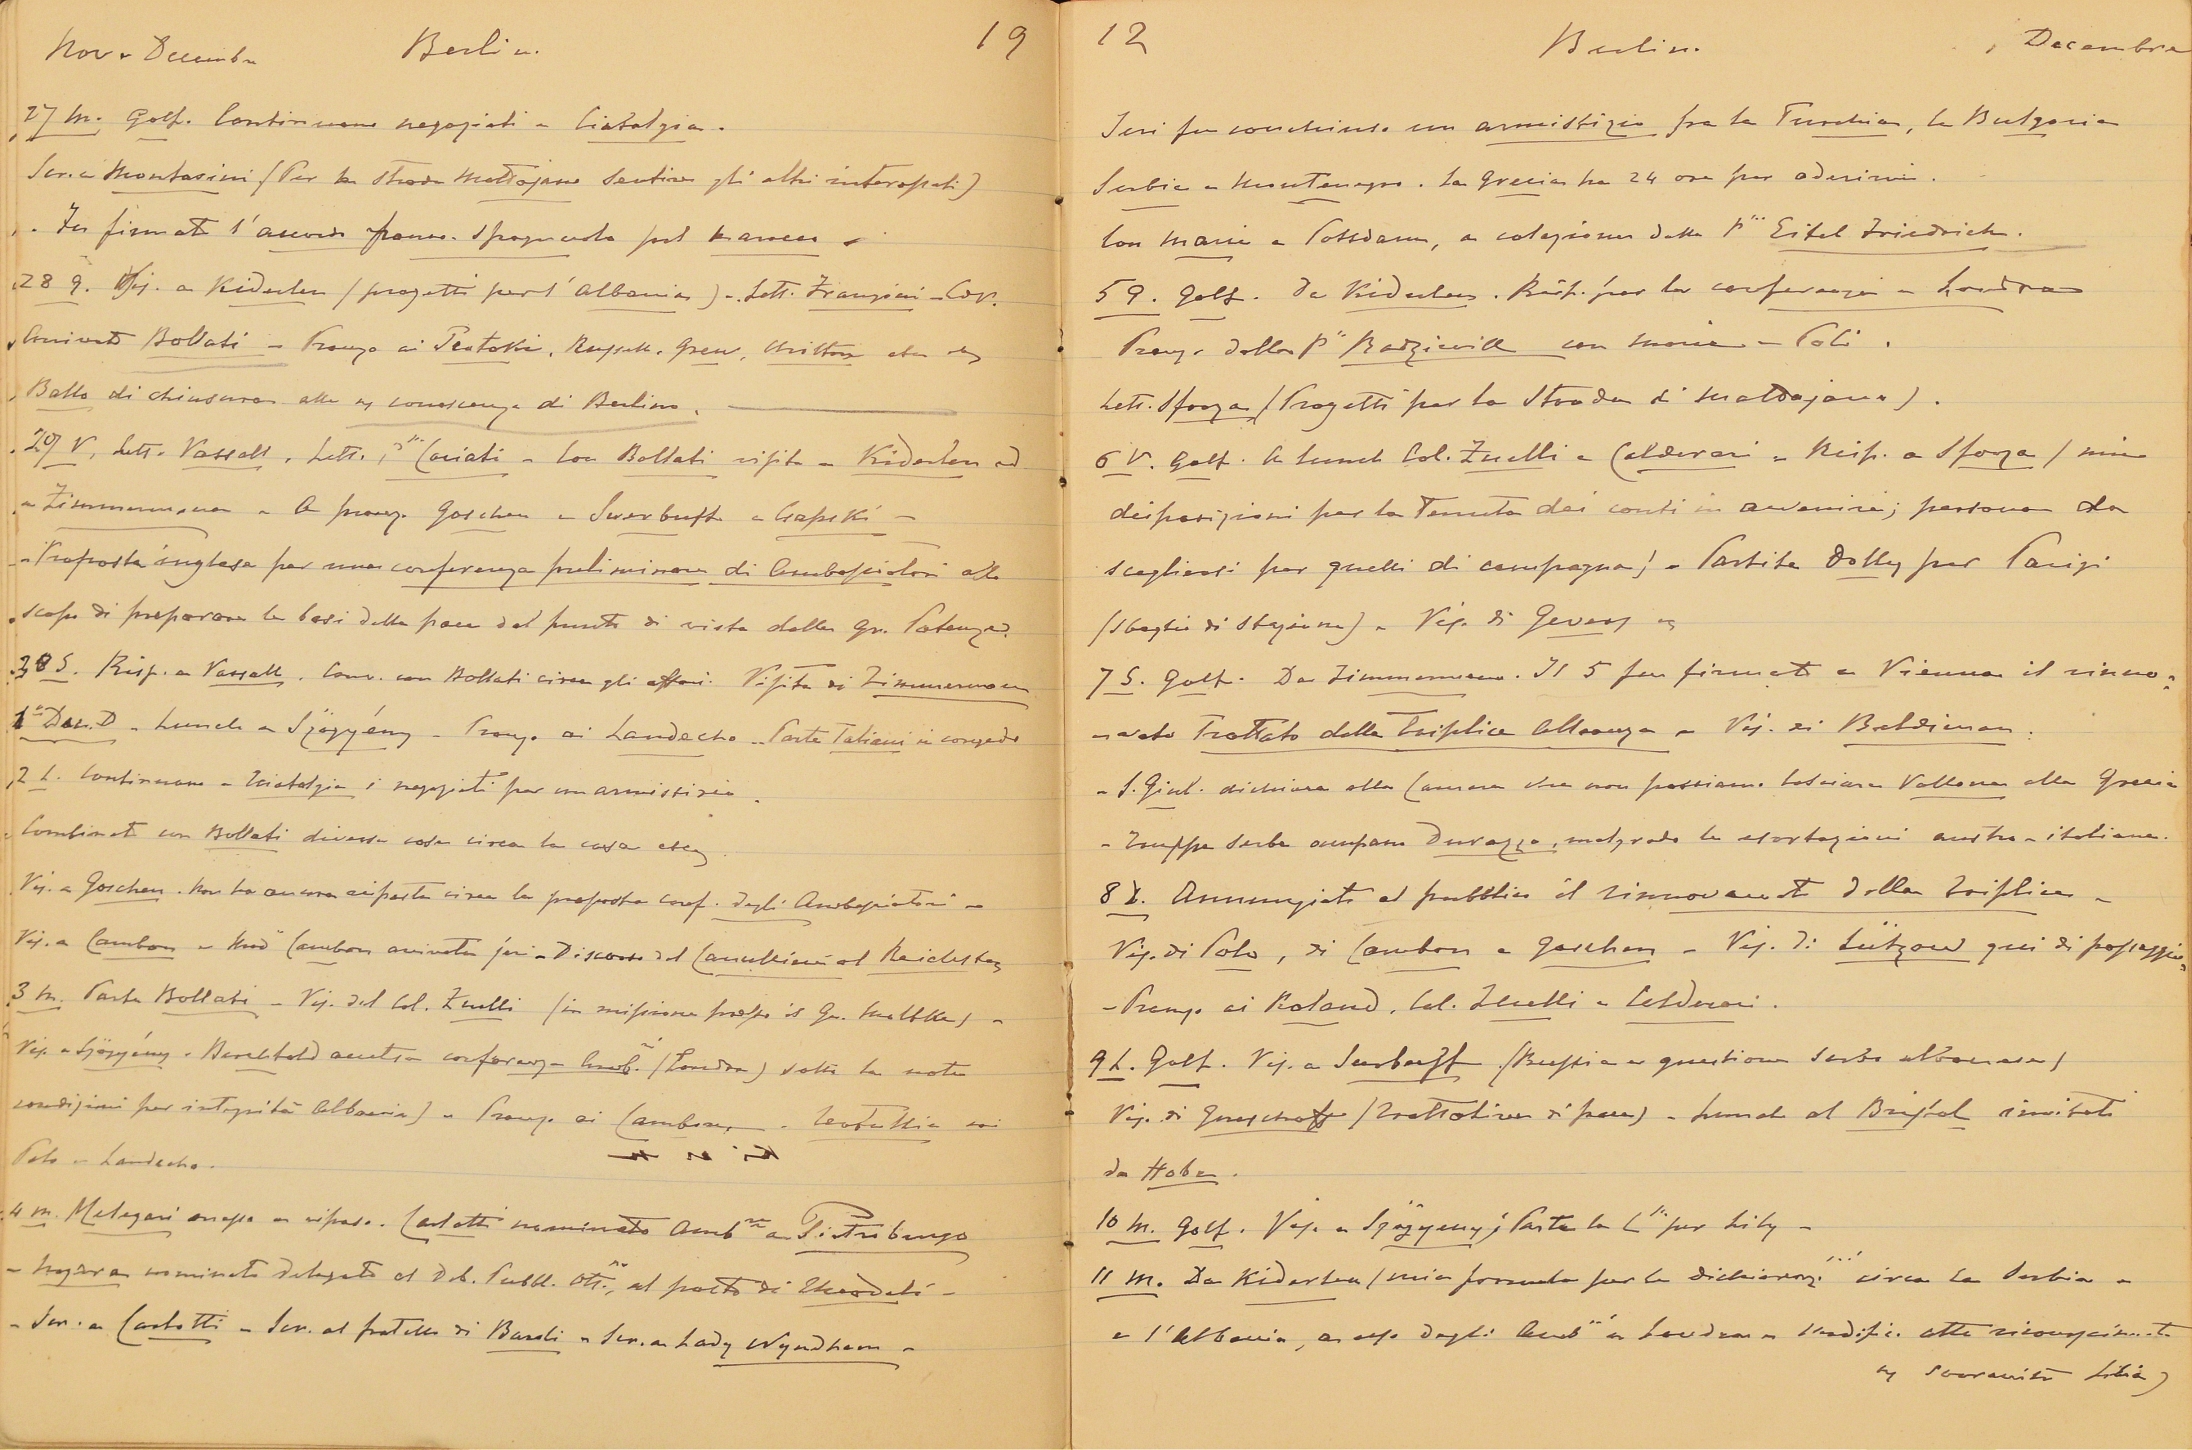 Nov e Decembre Berlin. 19
27 M. Golf. Continuano negoziati a Ciatalgia.
Scr. a Montasini (Per la strada Mattajana sentire gli altri interessati)
. Fu firmato l'accordo franco-spagnuolo pel Marocco
28 G. Vis. a Kiderlen (progetti per l'Albania) - Lett. Frangini - Cov.
Arrivato Bollati - Pranzo ai Teotoki, Russell, Grew, etc
Ballo di chiusura alle conoscenze di Berlino.
29 V. Lett. Vassall. Lett. Ciciati - Con Bollati visita a Kiderlen ed
a Zimmermann - A pranzo Goschen - Swerbufft - Czapski -
- Proposta inglese per una conferenza preliminare di Ambasciatori allo
scopo di preparare le basi della pace dal punto di vista delle Gr. Potenze.
30 S. Risp. a Vassall. Conv. con Bollati circa gli affari. Visita di Zimmermann
1° Dec. D - Lunch a Szögyény - Pranzo ai Landecho - Parte Taliani in congedo
2 L. Continuano a Ciatalgia i negoziati per un armistizio.
Combinato con Bollati diverse cose circa la casa etc
Vis. a Goschen. Non ha ancora risposta circa la proposta conf. degli Ambasciatori -
Vis. a Cambon - Mad Cambon arrivata ieri - Discorso del Cancelliere al Reichstag
3 M. Parte Bollati - Vis. del Col. Zuelli (in missione presso il Gr. Moltke) -
Vis. a Szögyény - Berchtold accetta conferenza Amb.ri (Londra) sotto le note
condizioni per integrità Albania) - Pranzo ai Cambon, - coi
Polo - Landecho.
4 M. Melegari messo a riposo. Carlotti nominato Amb.re a Pietroburgo
- Nogara nominato delegato al Deb. Pubbl. Ott.no, al posto di Theodoli -
- Scr. a Carlotti - Scr. al fratello di Baroli - Scr. a Lady Wyndham -
12 Berlin. Decembre
Ieri fu conchiuso un armistizio fra la Turchia, la Bulgaria
Serbia e Montenegro. La Grecia ha 24 ore per aderirvi.
Con Marie a Potsdam, a colazione dalla P.ssa Eitel Friedrich.
5 G. Golf. Da Kiderlen. Risp. per la conferenza a Londra
Pranzo dalla P.ssa Radziwill con Marie - Poli.
Lett. Sforza (Progetti per la strada di Mattajana).
6 V. Golf. A lunch Col. Zuelli e Calderari - Risp. a Sforza (mie
disposizioni per la tenuta dei conti in avvenire; persona da
scegliersi per quelli di campagna) - Partita Dolly per Parigi
(sbaglio di stazione) - Vis. di Gevers
7 S. Golf. Da Zimmermann. Il 5 fu firmato a Vienna il rinno-
-vato Trattato della Triplice Alleanza - Vis. di Beldiman.
- S. Giul. dichiara alla Camera che non possiamo lasciare Vallona alla Grecia
- Truppe serbe occupano Durazzo, malgrado le esortazioni austro-italiane.
8 D. Annunziato al pubblico il rinnovamento della Triplice -
Vis. di Polo, di Cambon e Goschen - Vis. di Lützow qui di passaggio
- Pranzo ai Roland, Col. Zuelli e Calderari.
9 L. Golf. Vis. a Swerbeeff (Russia e questione serbo albanese)
Vis. di (trattative di pace) - Lunch al Bristol invitati
da Hoba.
10 M. Golf. Vis. a Szögyény; Parte la C.ssa per Lily -
11 M. Da Kiderlen (mia formula per la dichiaraz. circa la Serbia -
e l'Albania, a asso degli Amb.ri a Londra - modific. alla riconoscimento
sovranità Libia)